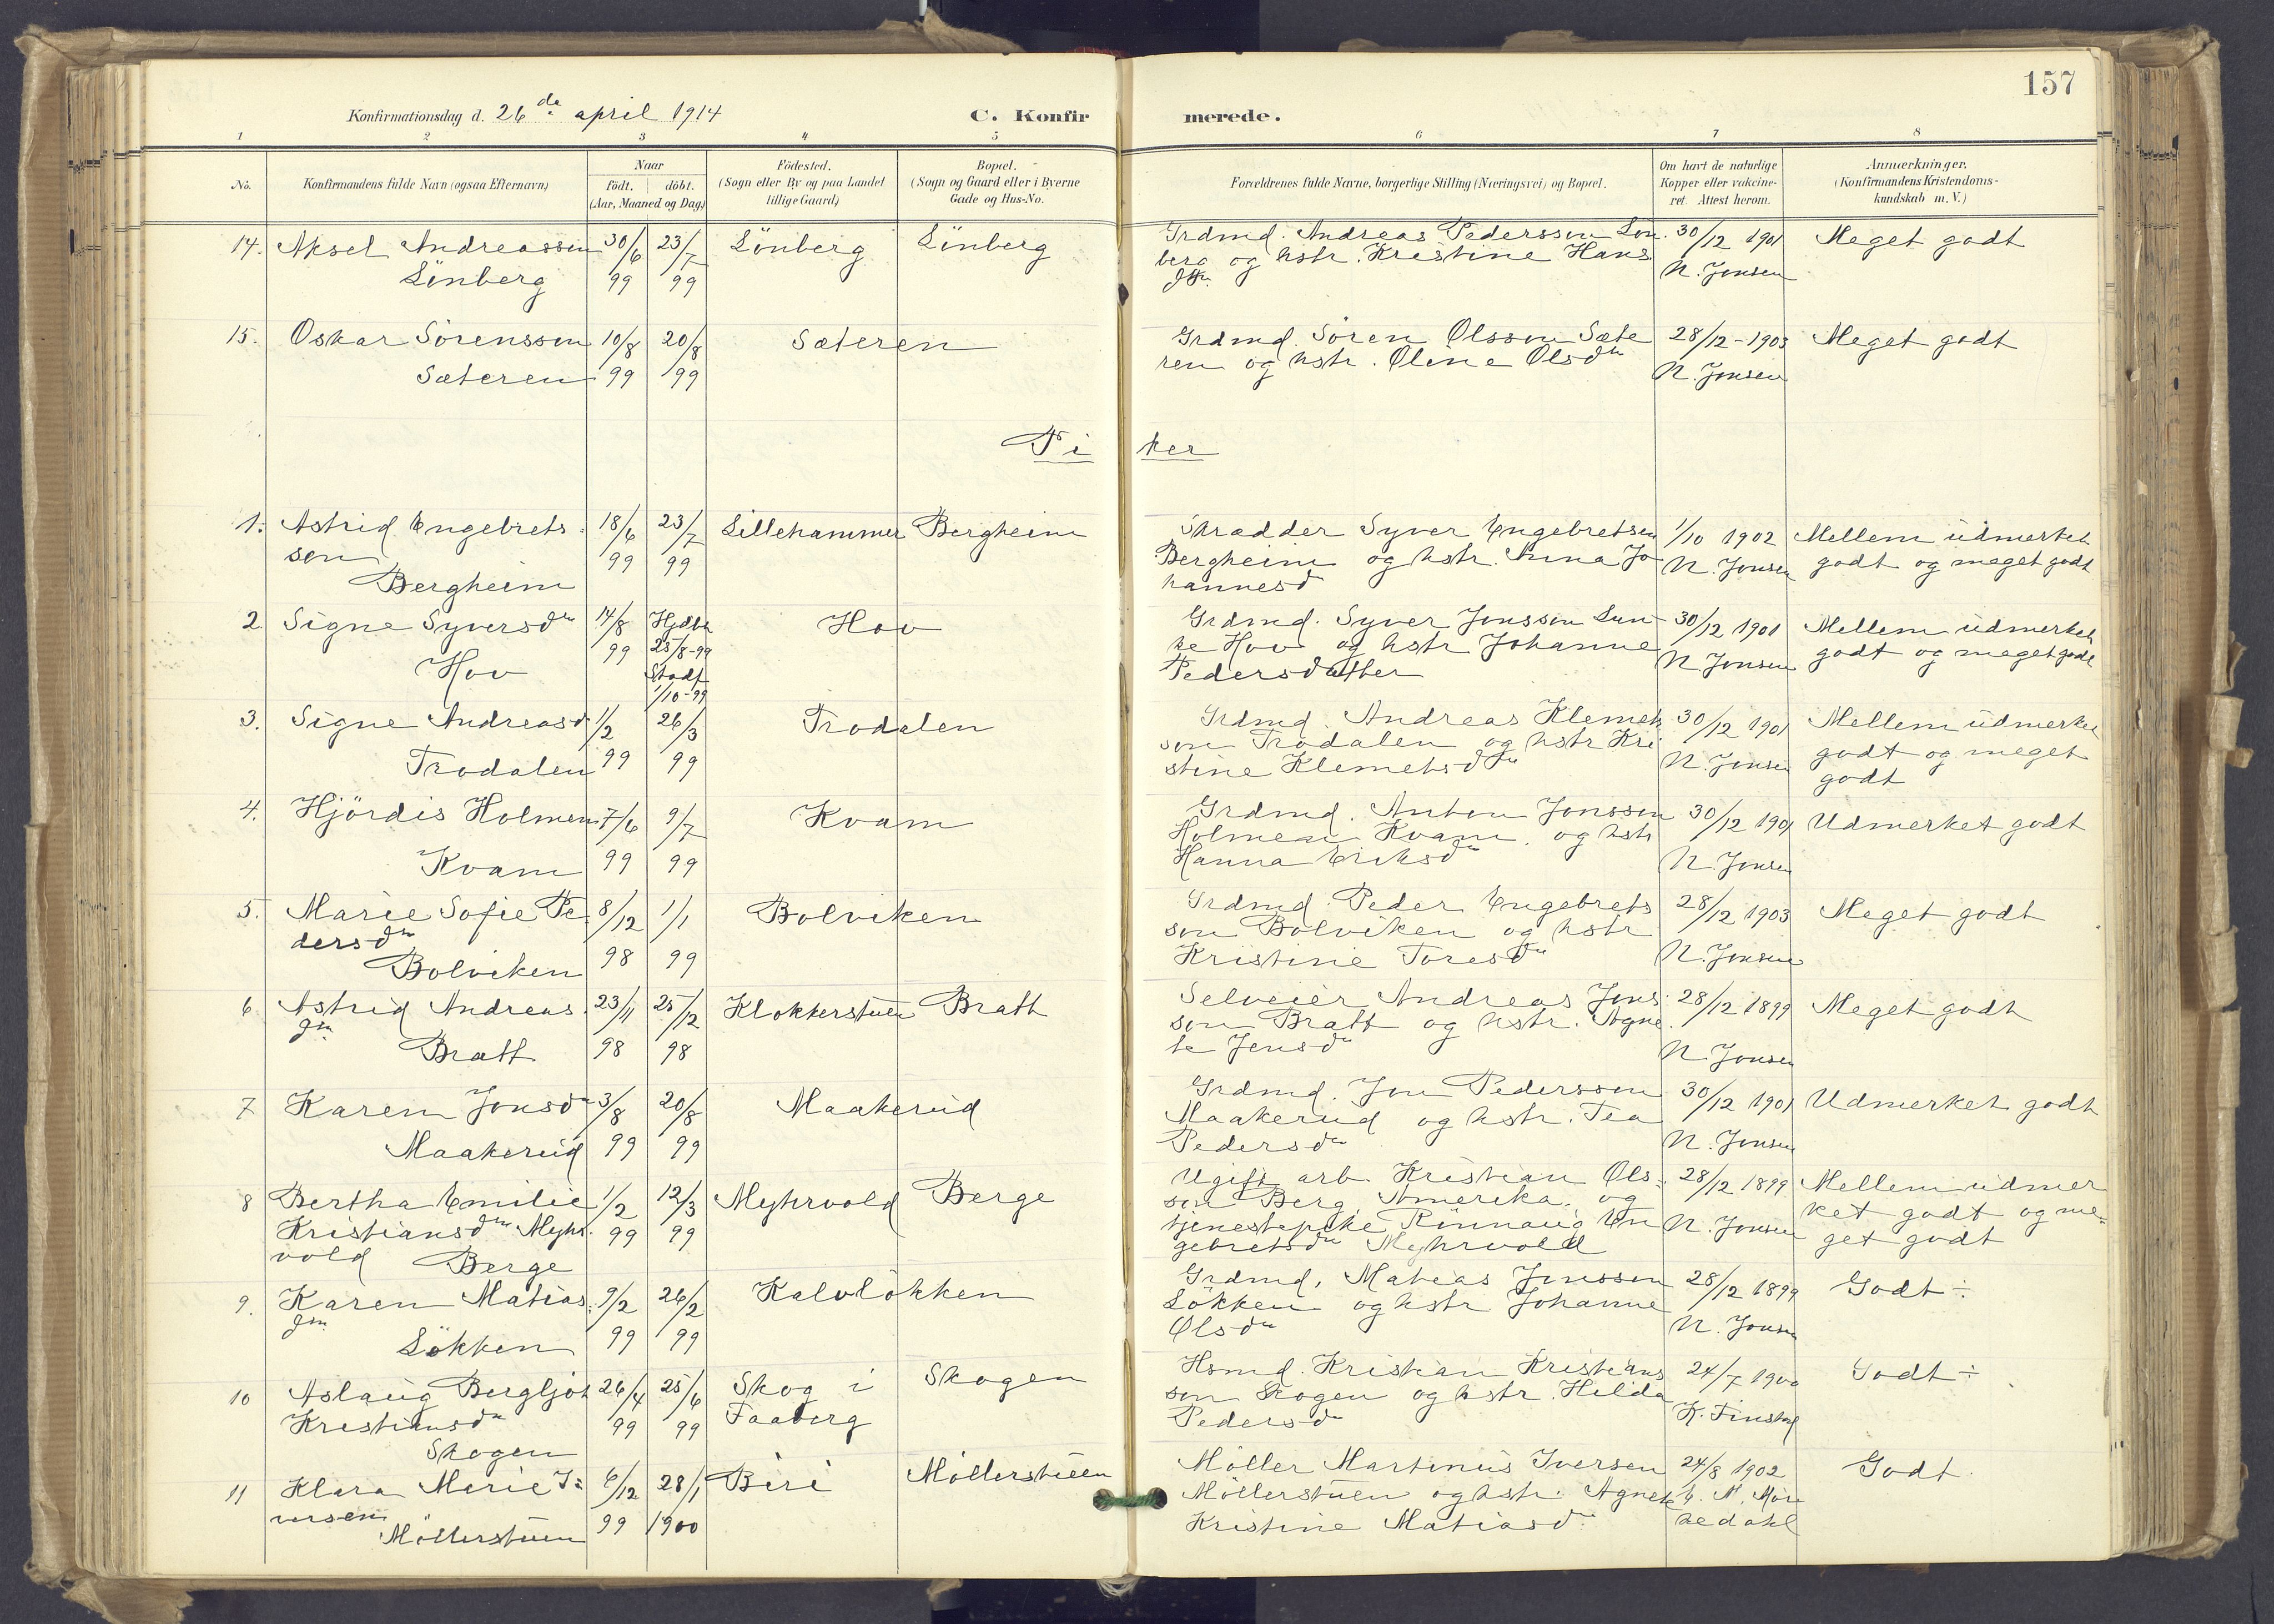 157
Konfirmationsdag d. 26de april 1914
C. Konfir
merede.
1 2 3 4 5 6 7 8
No.
Konfirmandens fulde Navn (ogsaa Efternavn)
Naar
födt. döbt.
(Aar, Maaned og Dag.)
Födested.
(Sogn eller By og paa Landet
tillige Gaard)
Bopæl.
(Sogn og Gaard eller i Byerne
Gade og Hus-No.
Forældrenes fulde Navne, borgerlige Stilling (Næringsvei) og Bopæl.
Om havt de naturlige
Kopper eller vakcine-
ret. Attest herom.
Anmærkninger.
(Konfirmandens Kristendoms-
kundskab m. V.)
14. Aksel Andreassen 30/6 23/7 Lönberg Lönberg
Lönberg 99 99
Grdmd. Andreas Pederssen Lön
berg og hstr. Kristine Hans
dtr.
30/12 1901
N. Jonsen
Meget godt
15. Oskar Sörenssen 10/8 20/8 Sæteren
Sæteren 99 99
Grdmd. Sören Olsson Sæte
ren og hstr. Oline Olsdtr
28/12-1903
N. Jonsen
Meget godt
Pi
ker
1. Astrid Engebrets 18/6 23/7 Lillehammer Bergheim
sen 99 99
Bergheim
Skrædder Syver Engebretsen
Bergheim og hstr. Anna Jo
hannesd
1/10 1902
N. Jonsen
Mellem udmerket
godt og meget godt
2. Signe Syversdtr 14/8 Hjdbt Hov
99 25/8-99
Hov Stadf
1/10-99
Grdmd. Syver Jonsson Lun
ke Hov og hstr Johanne
Pedersdatter
30/12 1901
N. Jonsen
Mellem udmerket
godt og meget godt
3. Signe Andreasd 1/2 26/3 Trodalen
Trodalen 99 99
Grdmd. Andreas Klemet
son Trodalen og hstr Kri
stine Klemetsdtr
30/12 1901
N. Jonsen
Mellem udmerket
godt og meget
godt
4. Hjördis Holmen 7/6 9/7 Kvam
Kvam 99 99
Grdmd. Anton Jonsson
Holmen Kvam. og hstr
Hanna Eriksdtr
30/12 1901
N. Jonsen
Udmerket godt
5. Marie Sofie Pe 8/12 1/1 Bolviken
dersdtr
Bolviken 98 99
Grdmd. Peder Engebrets
son Bolviken og hstr
Kristine Toresdtr
28/12 1903
N. Jonsen
Meget godt
6 Astrid Andreas 23/11 25/12 Klokkerstuen Bratt
dtr
Bratt 98 98
Selveier Andreas Jens
son Bratt og hstr. Agne
te Jensdtr
28/12 1899
N. Jonsen
Meget godt
7 Karen Jonsdtr 3/8 20/8 Maakerud
Maakerud 99 99
Grdmd. Jon Pedersson
Maakerud og hstr. Tea
Pedersdtr
30/12 1901
N. Jonsen
Udmerket godt
8 Bertha Emilie 1/2 12/3 Myhrvold Berge
Kristiansdtr Myhr 99 99
vold Berge
Ugift arb. Kristian Ols
son Berg, Amerika. og
tjenestepike Rönnaug En
gebretsdtr Myhrvold
28/12 1899
N. Jonsen
Mellem udmer
ket godt og me
get godt
9. Karen Matias 9/2 26/2 Kalvlökken
dtr
Lökken 99 99
Grdmd. Matias Jonsson
Lökken og hstr Johanne
Olsdtr
28/12 1899
N. Jonsen
Godt ÷
10 Aslaug Bergljot 26/4 25/6 Skog i Skogen
Kristiansdtr 99 99 Faaberg
Skogen
Hsmd. Kristian Kristians
son Skogen og hstr. Hilda
Pedersdtr
24/7 1900
K. Finstad
Godt ÷
11 Klara Marie I= 6/12 28/1 Biri Möllerstuen
versen
Möllerstuen 99 1900
Möller Martinus Iversen
Möllerstuen og hstr. Agnete
Kristine Matiasd
24/8 1902
Godt